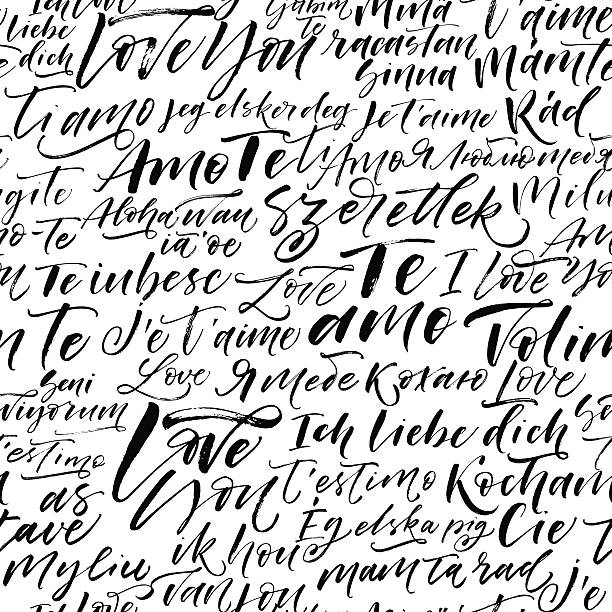 liebe dich
Love You
te
racastan
sinna
Mámte
t'aime
Ti amo
Jeg elsker deg
Je t'aime
Rád
Amo Te
Ti Amo
Я люблю тебя
gite
Aloha wau
ia 'oe
Szeretlek
Milu
mo-te
Am
Te iubesc
Love
Te
amo
I Love Yo
te
J'e t'aime
Volim
Seni
viyorum
Love
Я тебе Кохаю
Love
Love
You
Ich liebe dich
t'estimo
as
tave
T'estimo
Kocham
Cie
Ég elska þig
Myliu
ik hou
van jou
mám ta rád
j'e
Love